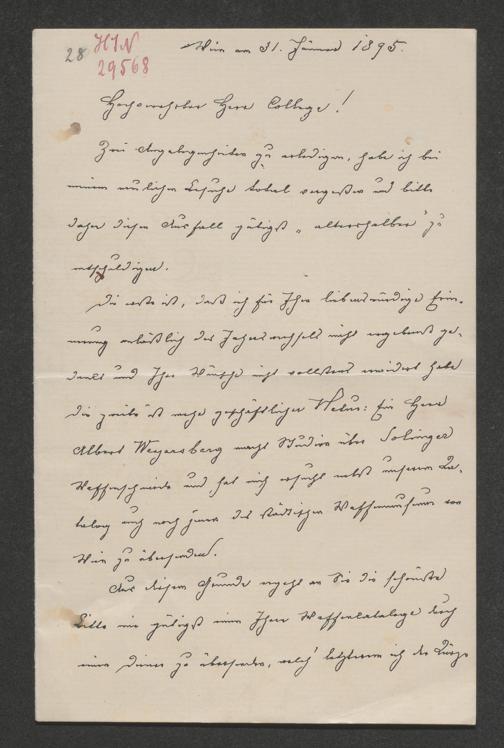 28 HIN
29568
Wien am 31. Jänner 1895.
Hochverehrter Herr College!
Zwei Angelegenheiten zu erledigen, habe ich bei
meinem neulichen Besuche total vergessen und bitte
daher diesen Ausfall gütigst „altershalber" zu
entschuldigen.
Die erste ist, daß ich für Ihre liebenswürdige Erin-
nerung anläßlich des Jahreswechsels nicht ergebenst ge-
dankt und Ihre Wünsche nicht vollstens erwidert habe
die zweite ist mehr geschäftlicher Natur: Ein Herr
Albert Weyersberg macht Studien über Solinger
Waffenschmiede und hat mich ersucht nebst unserem Ka-
talog auch noch jenen des städtischen Waffenmuseums von
Wien zu übersenden.
Aus diesem Grunde ergeht an Sie die schönste
Bitte mir gütigst einen Ihrer Waffenkataloge durch
einen Diener zu übersenden, welch' letzterem ich die